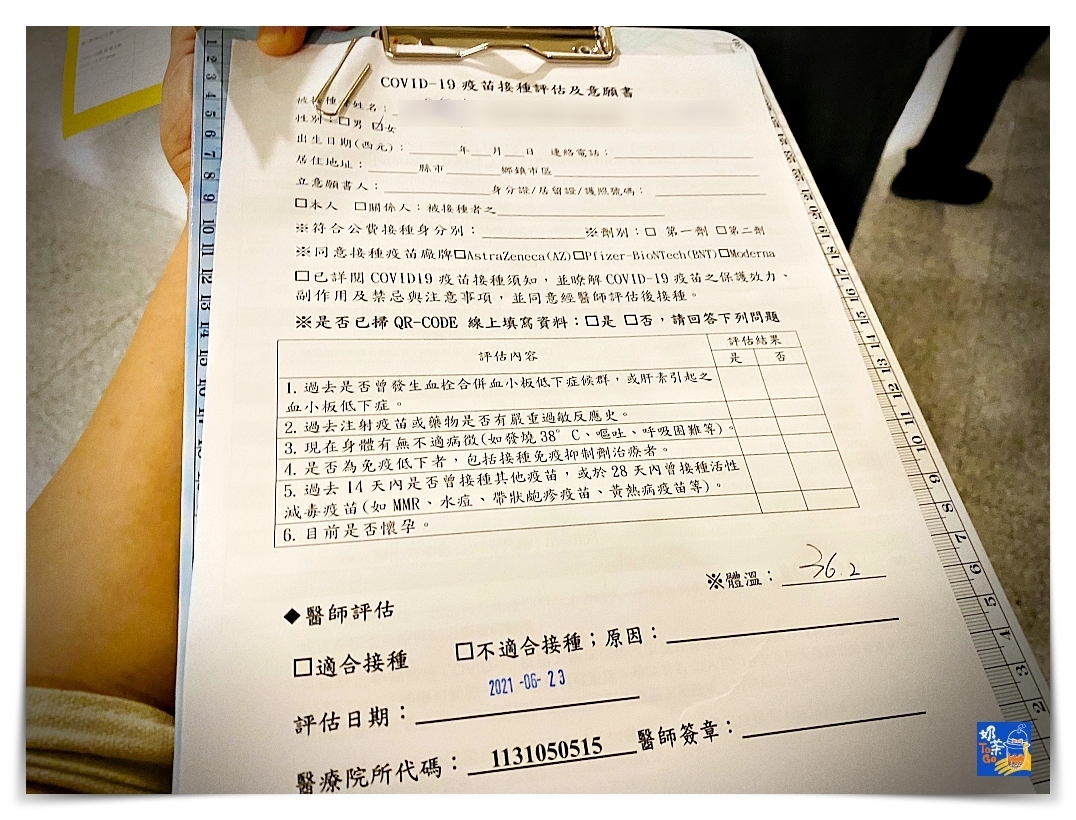 COVID-19 疫苗接種評估及意願書
被接種者姓名：
性別：□男 ☑女
出生日期(西元)：______年___月___日 連絡電話：____________
居住地址：______縣市______鄉鎮市區____________
立意願書人：____________身分證/居留證/護照號碼：____________
□本人 □關係人：被接種者之____________
※符合公費接種身分別：____________※劑別：□ 第一劑 □第二劑
※同意接種疫苗廠牌□AstraZeneca(AZ)□Pfizer-BioNTech(BNT)□Moderna
□已詳閱 COVID19 疫苗接種須知，並瞭解 COVID-19 疫苗之保護效力、
副作用及禁忌與注意事項，並同意經醫師評估後接種。
※是否已掃 QR-CODE 線上填寫資料：□是 □否，請回答下列問題
評估內容
評估結果
是 否
1. 過去是否曾發生血栓合併血小板低下症候群，或肝素引起之
血小板低下症。
2. 過去注射疫苗或藥物是否有嚴重過敏反應史。
3. 現在身體有無不適病徵(如發燒 38° C、嘔吐、呼吸困難等)。
4. 是否為免疫低下者，包括接種免疫抑制劑治療者。
5. 過去 14 天內是否曾接種其他疫苗，或於 28 天內曾接種活性
減毒疫苗(如 MMR、水痘、帶狀皰疹疫苗、黃熱病疫苗等)。
6. 目前是否懷孕。
※體溫：36.2
◆醫師評估
□適合接種 □不適合接種；原因：____________
2021-06-23
評估日期：____________
醫療院所代碼：1131050515 醫師簽章：____________
奶茶
ToGo